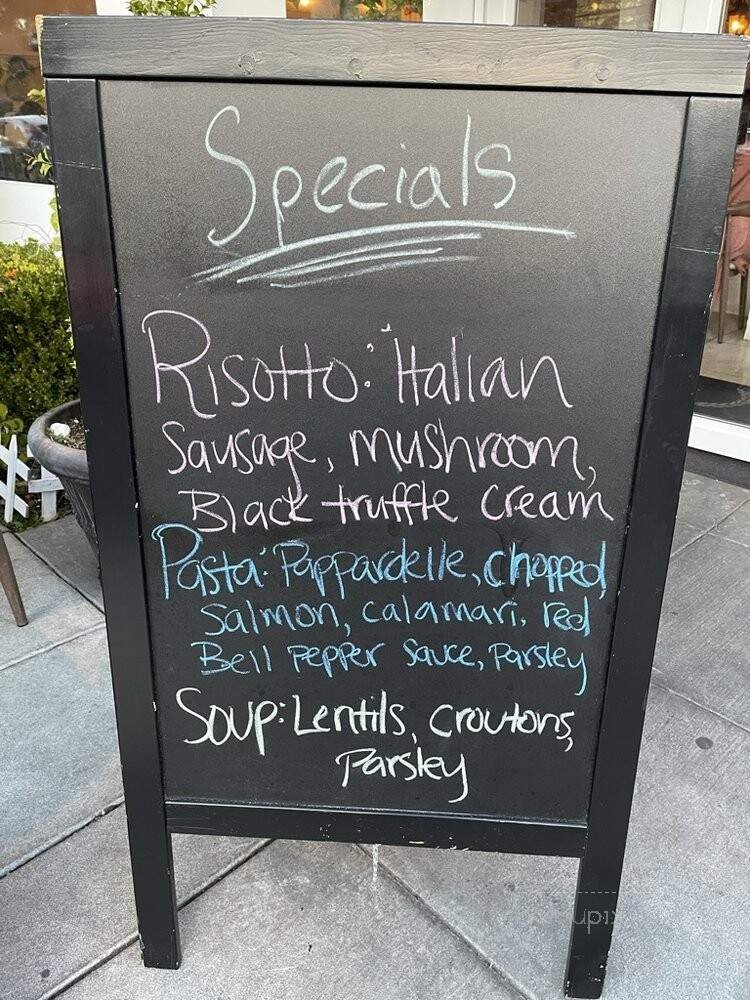 Specials
Risotto: Italian
Sausage, mushroom,
Black truffle cream
Pasta: Pappardelle, chopped,
salmon, calamari, red
Bell Pepper Sauce, Parsley
Soup: Lentils, croutons,
Parsley